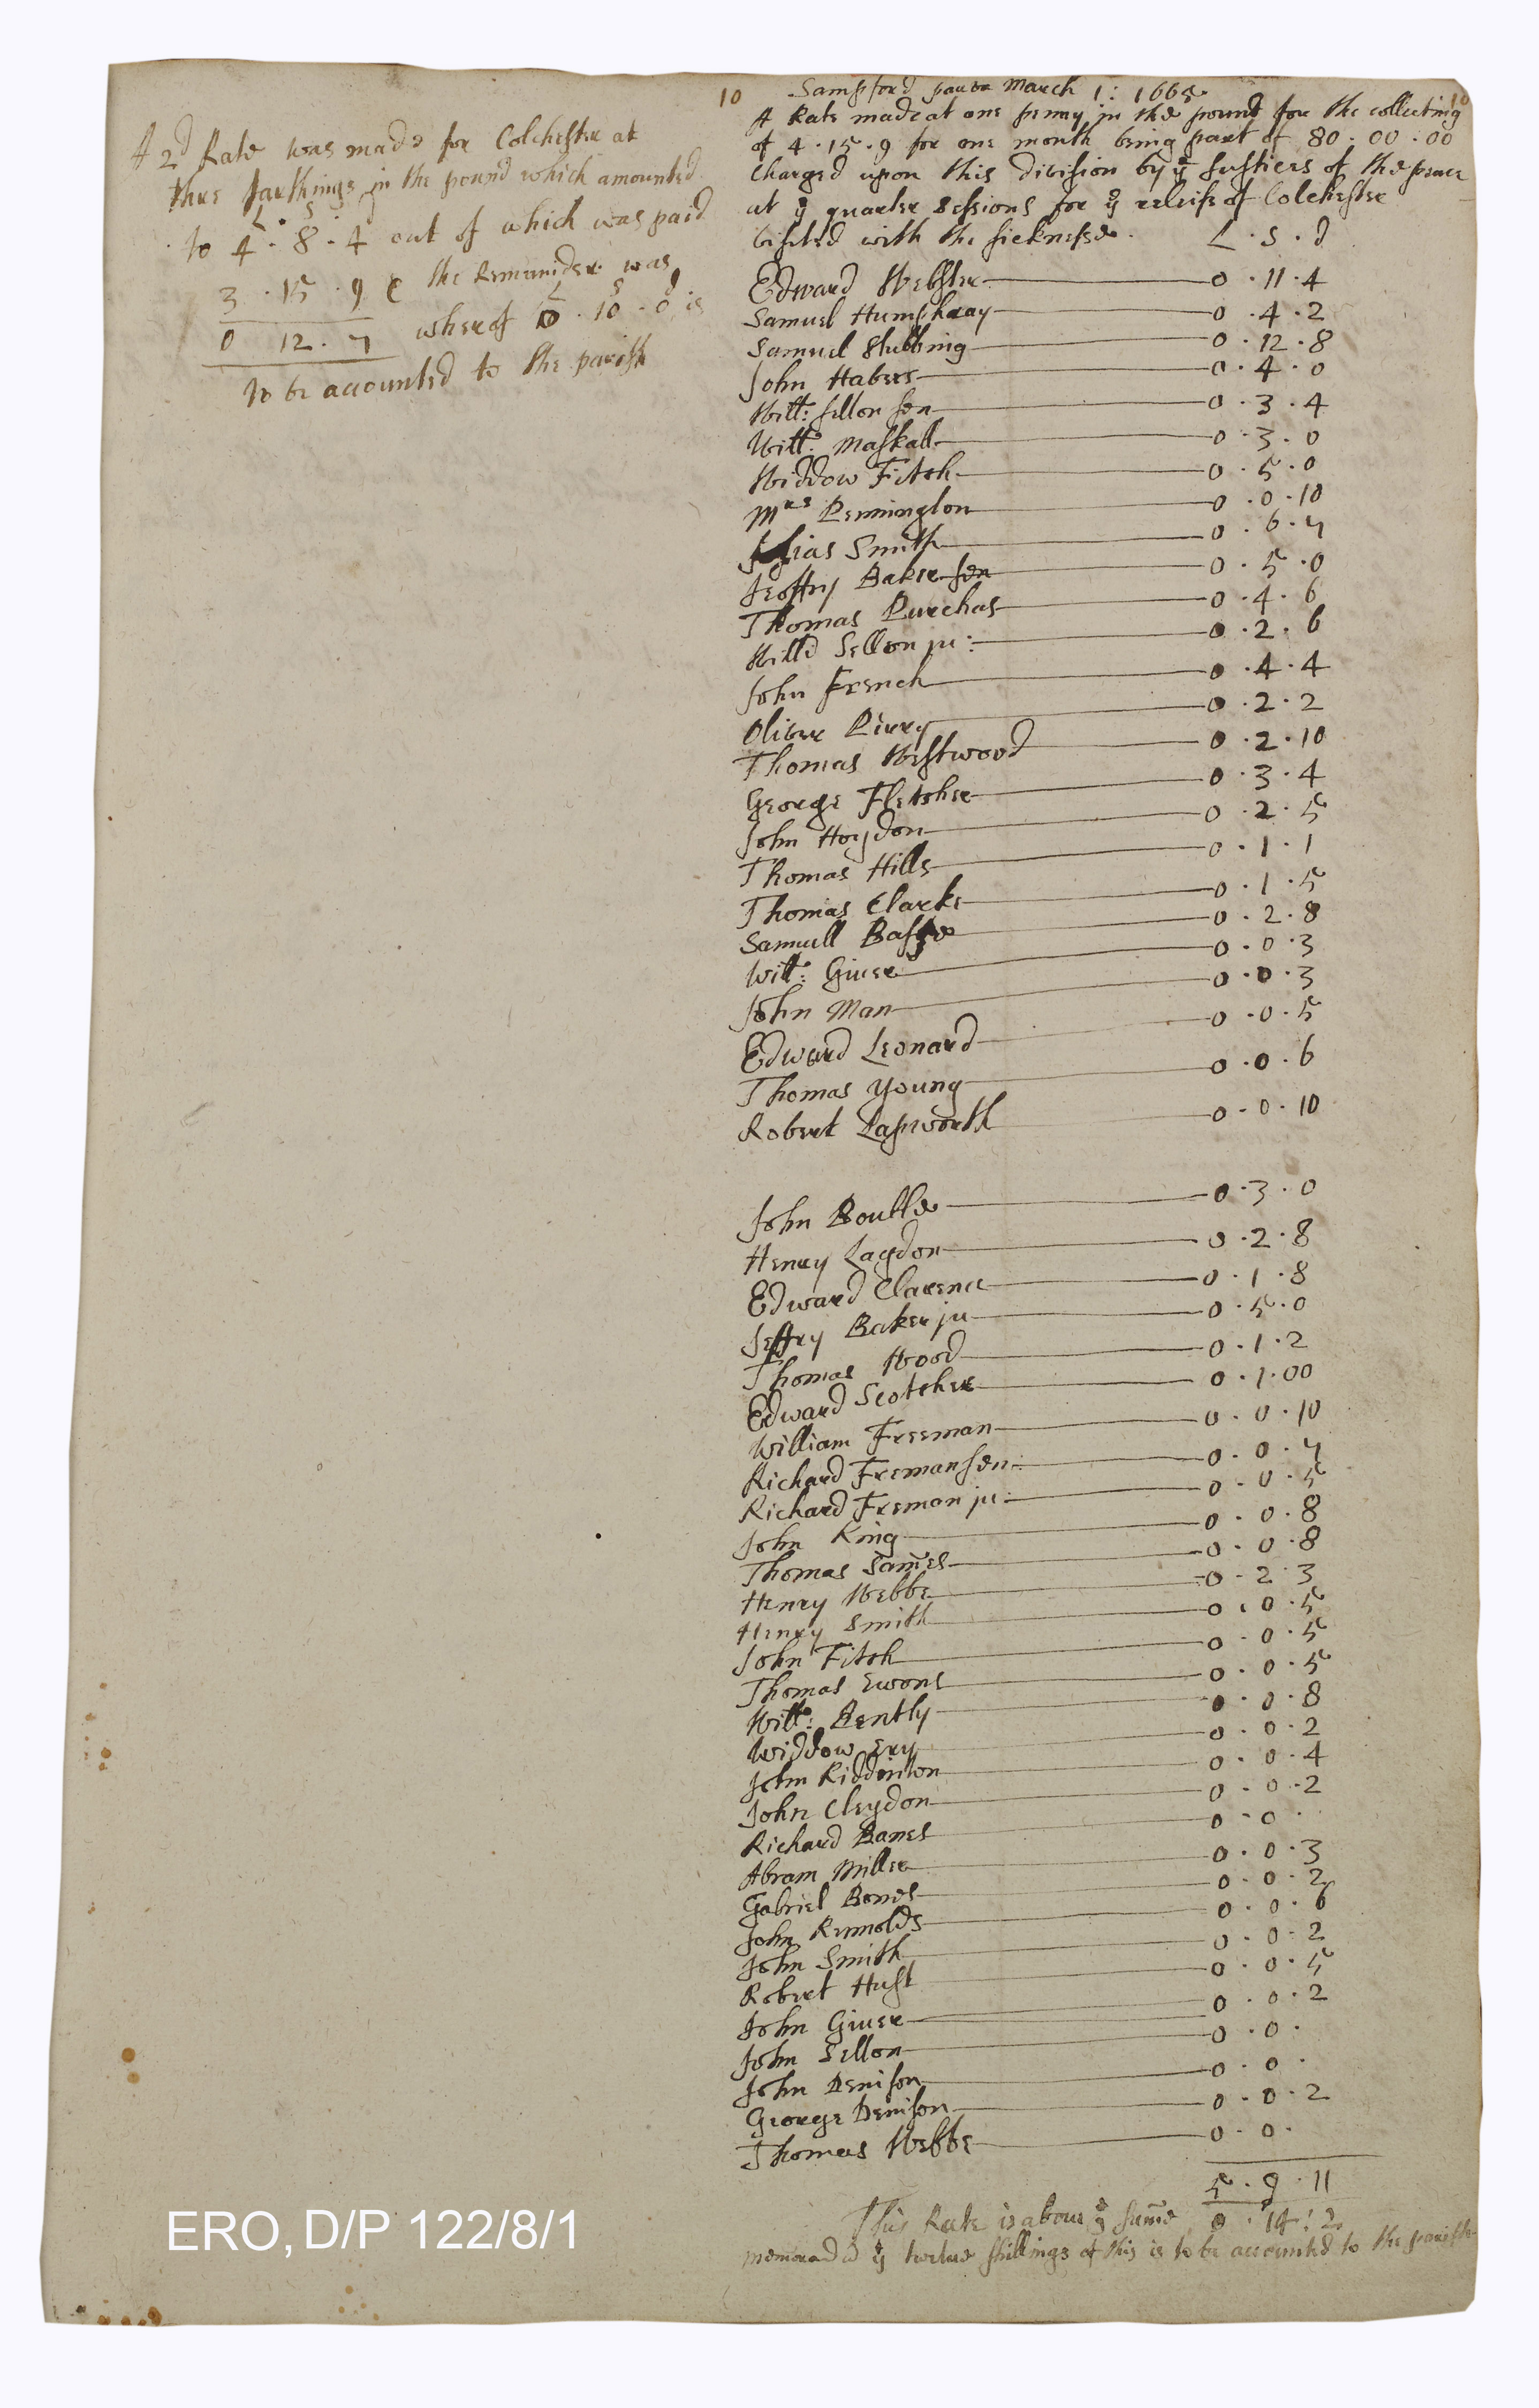 A 2d Rate was made for Colchester at
thre farthings in the pound which amounted
L S
to 4 · 8 · 4 out of which was paid
3 · 15 · 9 the Remainder was
0 12 · 7 wherof 0 · 10 · 0 is
to be accounted to the parish
10 Sampford parva March 1: 1665 10
A Rate made at one penny in the pound for the collecting
of 4 · 15 · 9 for one month being part of 80 · 00 · 00
Charged upon this division by ye Justices of the peace
at ye quarter Sessions for ye releife of Colchester
visited with the sicknesse. L · S · d
Edward Webster 0 · 11 · 4
Samuel Humphray 0 · 4 · 2
Samuel Stubbing 0 · 12 · 8
John Havers 0 · 4 · 0
Will: Sellon sen 0 · 3 · 4
Will: Maskall 0 · 3 · 0
Widdow Fitch 0 · 5 · 0
Mrs Pennington 0 · 0 · 10
Elias Smith 0 · 6 · 7
Jeoffry Baker sen 0 · 5 · 0
Thomas Purchas 0 · 4 · 6
Will Sellon ju: 0 · 2 · 6
John French 0 · 4 · 4
Oliver Pirry 0 · 2 · 2
Thomas Westwood 0 · 2 · 10
George Fletcher 0 · 3 · 4
John Hoydon 0 · 2 · 5
Thomas Hills 0 · 1 · 1
Thomas Clarke 0 · 1 · 5
Samuell 0 · 2 · 8
Will: Giver 0 · 0 · 3
John Man 0 · 0 · 3
Edward Leonard 0 · 0 · 5
Thomas Young 0 · 0 · 6
Robert Lapworth 0 · 0 · 10
John Boutle 0 · 3 · 0
Henry Laydon 0 · 2 · 8
Edward Clarence 0 · 1 · 8
Jeffry Baker ju 0 · 5 · 0
Thomas Wood 0 · 1 · 2
Edward Scotcher 0 · 1 · 00
William Freeman 0 · 0 · 10
Richard Freman sen: 0 · 0 · 7
Richard Freman ju: 0 · 0 · 5
John King 0 · 0 · 8
Thomas Sames 0 · 0 · 8
Henry Webbe 0 · 2 · 3
Henry Smith 0 · 0 · 5
John Fitch 0 · 0 · 5
Thomas Ewons 0 · 0 · 5
Will: Bently 0 · 0 · 8
Widdow Ery 0 · 0 · 2
John Riddinton 0 · 0 · 4
John Cleydon 0 · 0 · 2
Richard Banes 0 · 0 ·
Abram Miller 0 · 0 · 3
Gabriel Bones 0 · 0 · 2
John Rennolds 0 · 0 · 6
John Smith 0 · 0 · 2
Robert Hust 0 · 0 · 5
John Giver 0 · 0 · 2
John Sellon 0 · 0 ·
John Denison 0 · 0 ·
George Denison 0 · 0 · 2
Thomas Webbe 0 · 0 ·
5 · 9 · 11
This Rate is above ye sume 0 · 14 : 2
ye twelve shillings of this is to be accounted to the parish
ERO, D/P 122/8/1